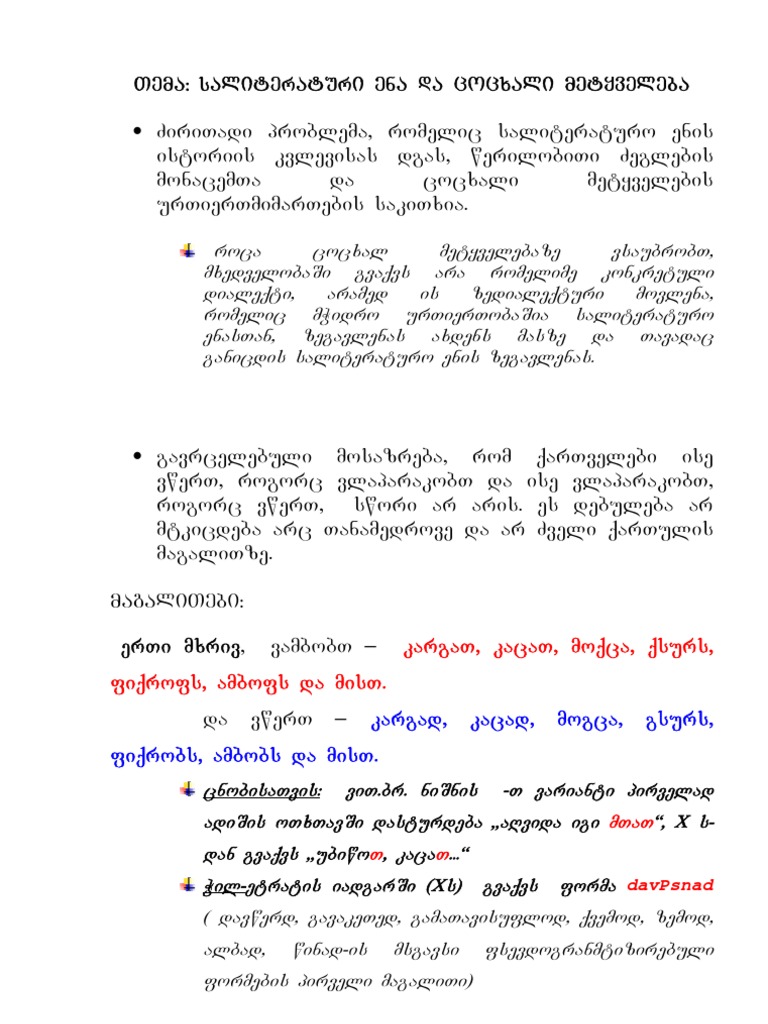 თემა: სალიტერატური ენა და ცოცხალი მეტყველება
• ძირითადი პრობლემა, რომელიც სალიტერატურო ენის
ისტორიის კვლევისას დგას, წერილობითი ძეგლების
მონაცემთა და ცოცხალი მეტყველების
ურთიერთმიმართების საკითხია.
როცა ცოცხალ მეტყველებაზე ვსაუბრობთ,
მხედველობაში გვაქვს არა რომელიმე კონკრეტული
დიალექტი, არამედ ის ზედიალექტური მოვლენა,
რომელიც მჭიდრო ურთიერთობაშია სალიტერატურო
ენასთან, ზეგავლენას ახდენს მასზე და თავადაც
განიცდის სალიტერატურო ენის ზეგავლენას.
• გავრცელებული მოსაზრება, რომ ქართველები ისე
ვწერთ, როგორც ვლაპარაკობთ და ისე ვლაპარაკობთ,
როგორც ვწერთ, სწორი არ არის. ეს დებულება არ
მტკიცდება არც თანამედროვე და არ ძველი ქართულის
მაგალითზე.
მაგალითები:
ერთი მხრივ, ვამბობთ – კარგათ, კაცათ, მოქცა, ქსურს,
ფიქროფს, ამბოფს და მისთ.
და ვწერთ – კარგად, კაცად, მოგცა, გსურს,
ფიქრობს, ამბობს და მისთ.
ცნობისათვის: ვით.ბრ. ნიშნის -თ ვარიანტი პირველად
ადიშის ოთხთავში დასტურდება „აღვიდა იგი მთათ“, X ს-
დან გვაქვს „უბიწოთ, კაცათ...“
ჭილ-ეტრატის იადგარში (Xს) გვაქვს ფორმა davPsnad
( დავწერდ, გავაკეთედ, გამათავისუფლოდ, ქვემოდ, ზემოდ,
ალბად, წინად-ის მსგავსი ფსევდოგრანმტიზირებული
ფორმების პირველი მაგალითი)